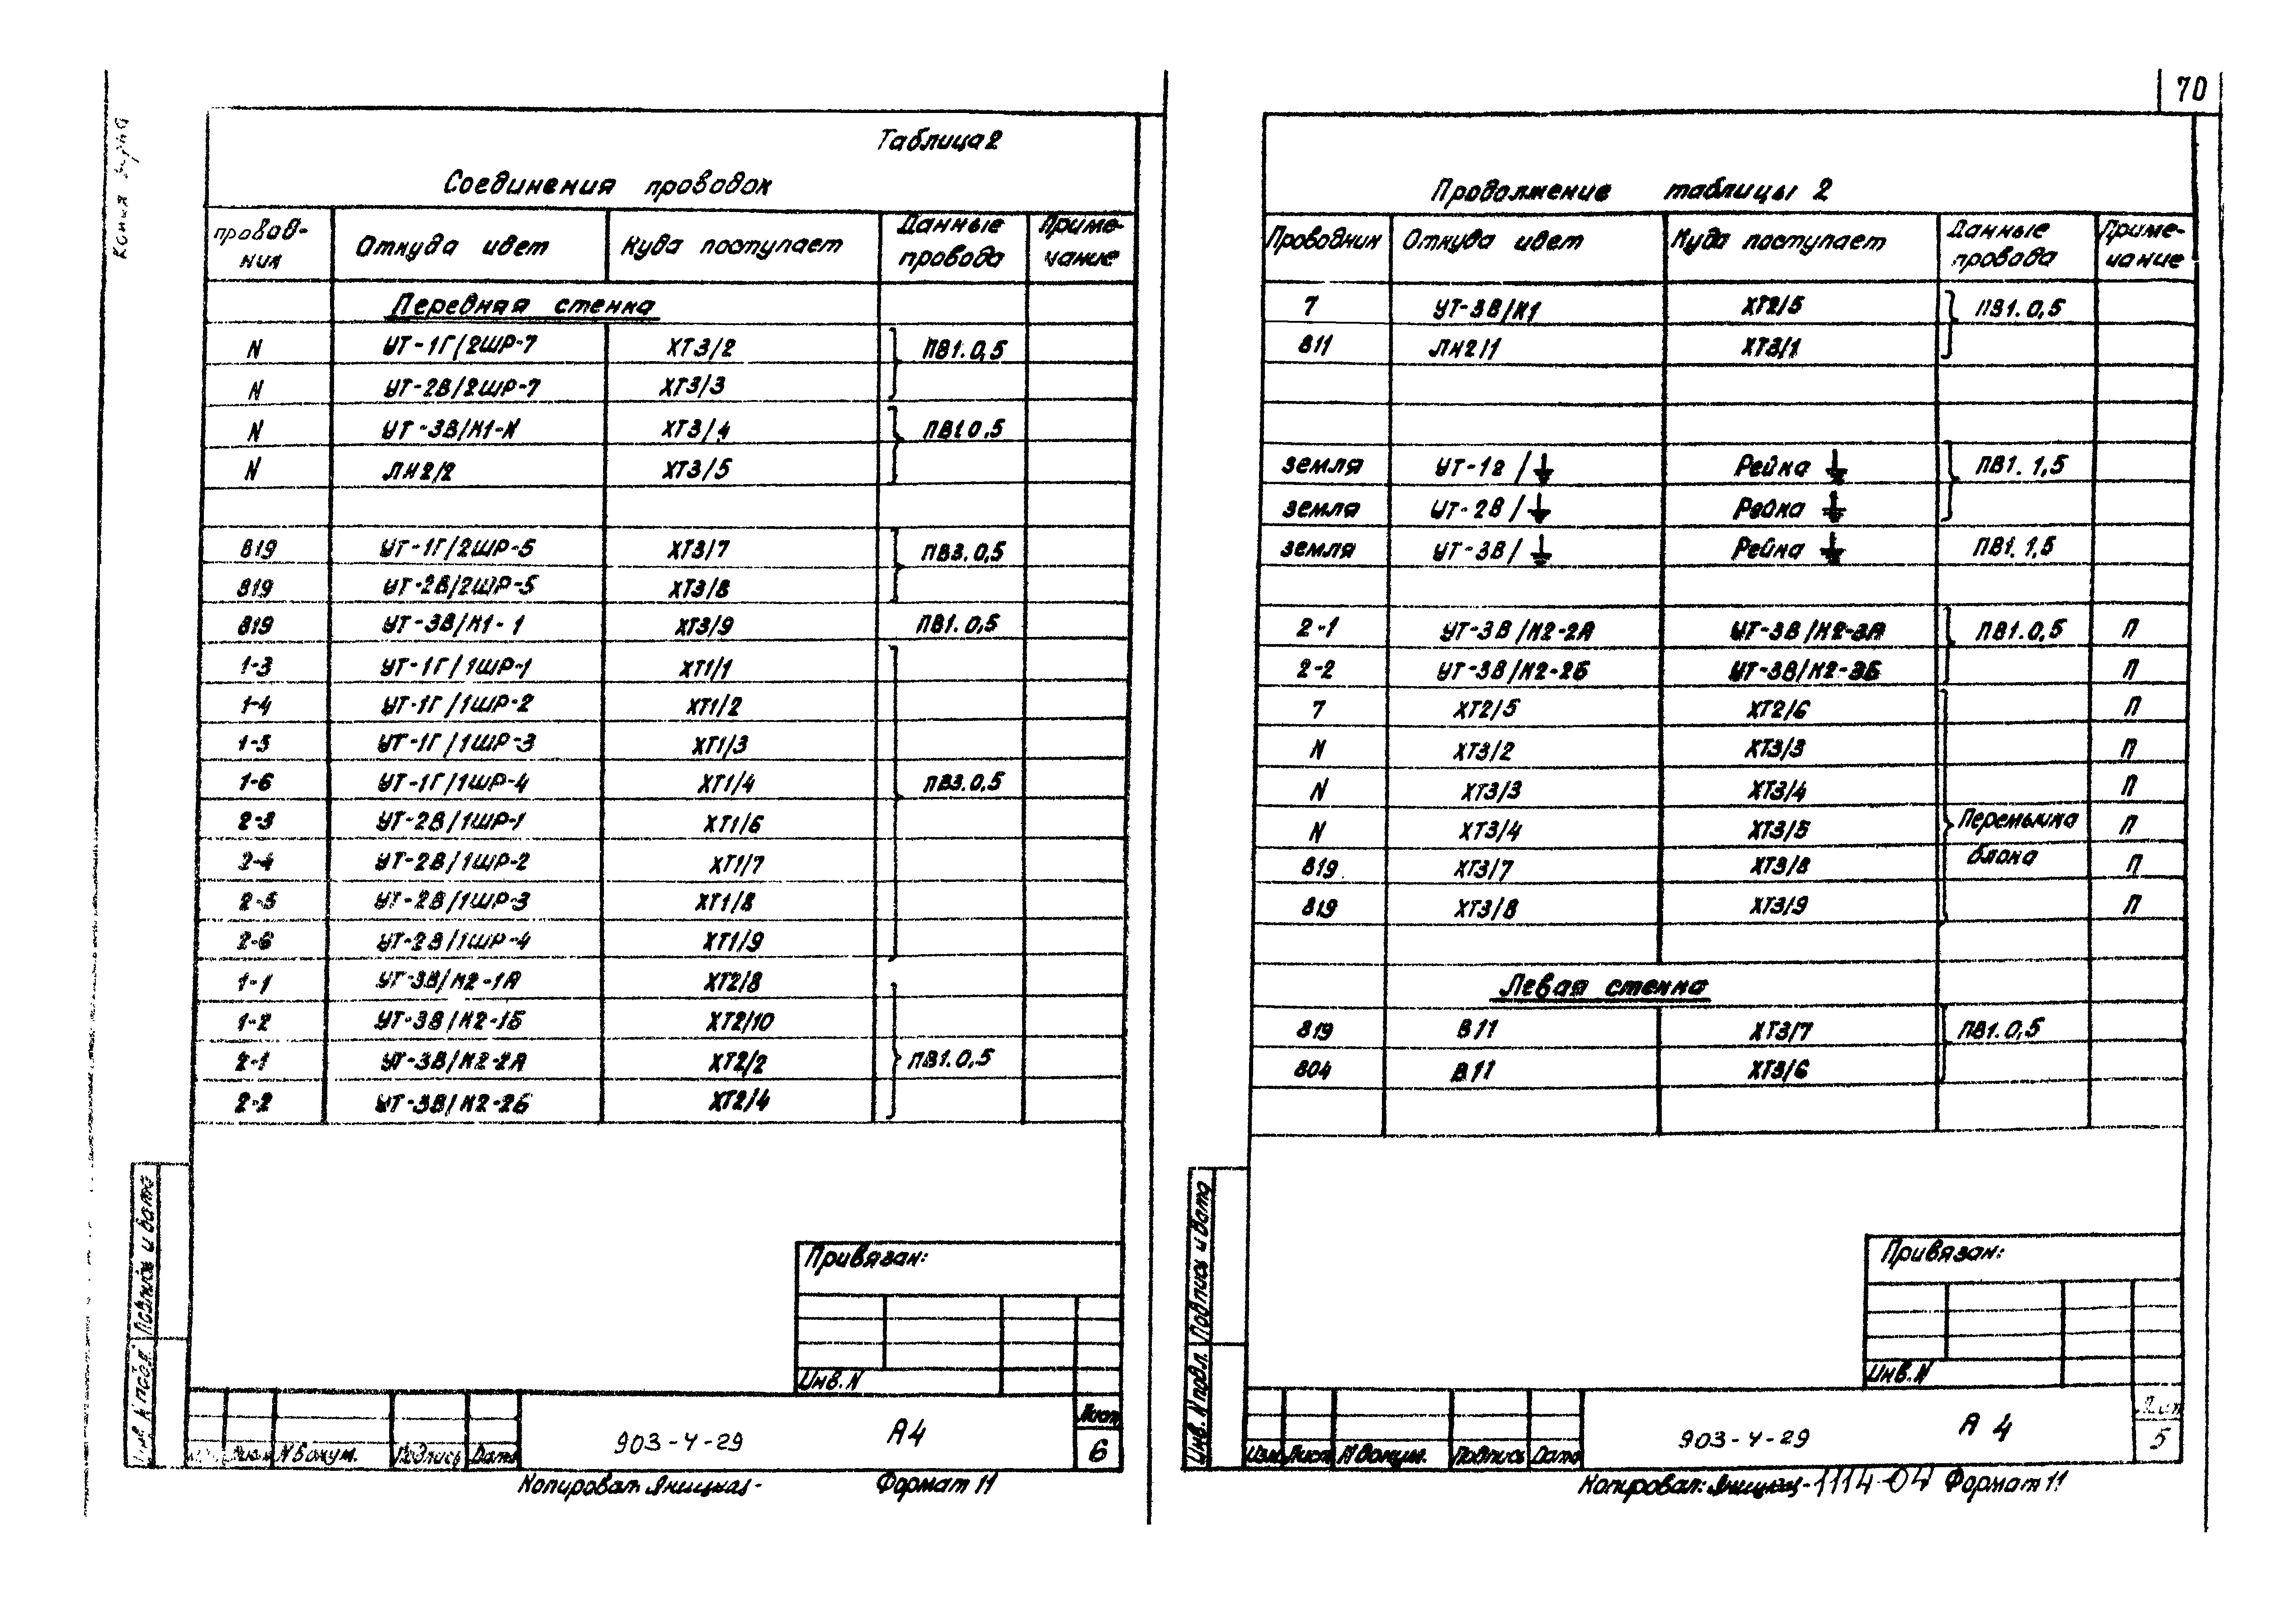 70
Копия верна
Таблица 2
Соединения проводок
провод-ник | Откуда идет | Куда поступает | Данные провода | Приме-чание
Передняя стенка
N | УТ-1Г/2ШР-7 | ХТ3/2 | ПВ1.0,5
N | УТ-2В/2ШР-7 | ХТ3/3
N | УТ-3В/К1-N | ХТ3/4 | ПВ1 0,5
N | ЛН2/2 | ХТ3/5
819 | УТ-1Г/2ШР-5 | ХТ3/7 | ПВ3.0,5
819 | УТ-2В/2ШР-5 | ХТ3/8
819 | УТ-3В/К1-1 | ХТ3/9 | ПВ1.0,5
1-3 | УТ-1Г/1ШР-1 | ХТ1/1
1-4 | УТ-1Г/1ШР-2 | ХТ1/2
1-5 | УТ-1Г/1ШР-3 | ХТ1/3
1-6 | УТ-1Г/1ШР-4 | ХТ1/4 | ПВ3.0,5
2-3 | УТ-2В/1ШР-1 | ХТ1/6
2-4 | УТ-2В/1ШР-2 | ХТ1/7
2-5 | УТ-2В/1ШР-3 | ХТ1/8
2-6 | УТ-2В/1ШР-4 | ХТ1/9
1-1 | УТ-3В/К2-1А | ХТ2/8
1-2 | УТ-3В/К2-1Б | ХТ2/10
2-1 | УТ-3В/К2-2А | ХТ2/2 | ПВ1.0,5
2-2 | УТ-3В/К2-2Б | ХТ2/4
Привязан:
Инв. N
Подпись и дата
Инв. N подл.
Лист N докум. Подпись Дата
903-4-29
А4
Лист
6
Копировал: Яницкая-
Формат 11
Продолжение таблицы 2
Проводник | Откуда идет | Куда поступает | Данные провода | Приме-чание
7 | УТ-3В/К1 | ХТ2/5 | ПВ1.0,5
811 | ЛН2/1 | ХТ3/1
земля | УТ-1г/⏚ | Рейка ⏚ | ПВ1. 1,5
земля | УТ-2В/⏚ | Рейка ⏚
земля | УТ-3В/⏚ | Рейка ⏚ | ПВ1. 1,5
2-1 | УТ-3В/К2-2А | УТ-3В/К2-3А | ПВ1.0,5 | П
2-2 | УТ-3В/К2-2Б | УТ-3В/К2-3Б | П
7 | ХТ2/5 | ХТ2/6 | П
N | ХТ3/2 | ХТ3/3 | П
N | ХТ3/3 | ХТ3/4 | П
N | ХТ3/4 | ХТ3/5 | Перемычка | П
819 | ХТ3/7 | ХТ3/8 | блока | П
819 | ХТ3/8 | ХТ3/9 | П
Левая стенка
819 | В11 | ХТ3/7 | ПВ1.0,5
804 | В11 | ХТ3/6
Привязан:
Инв. N
Подпись и дата
Инв. N подл.
Изм Лист N докум. Подпись Дата
903-4-29
А 4
Лист
5
Копировал: Яницкая- 1114-04 Формат 11